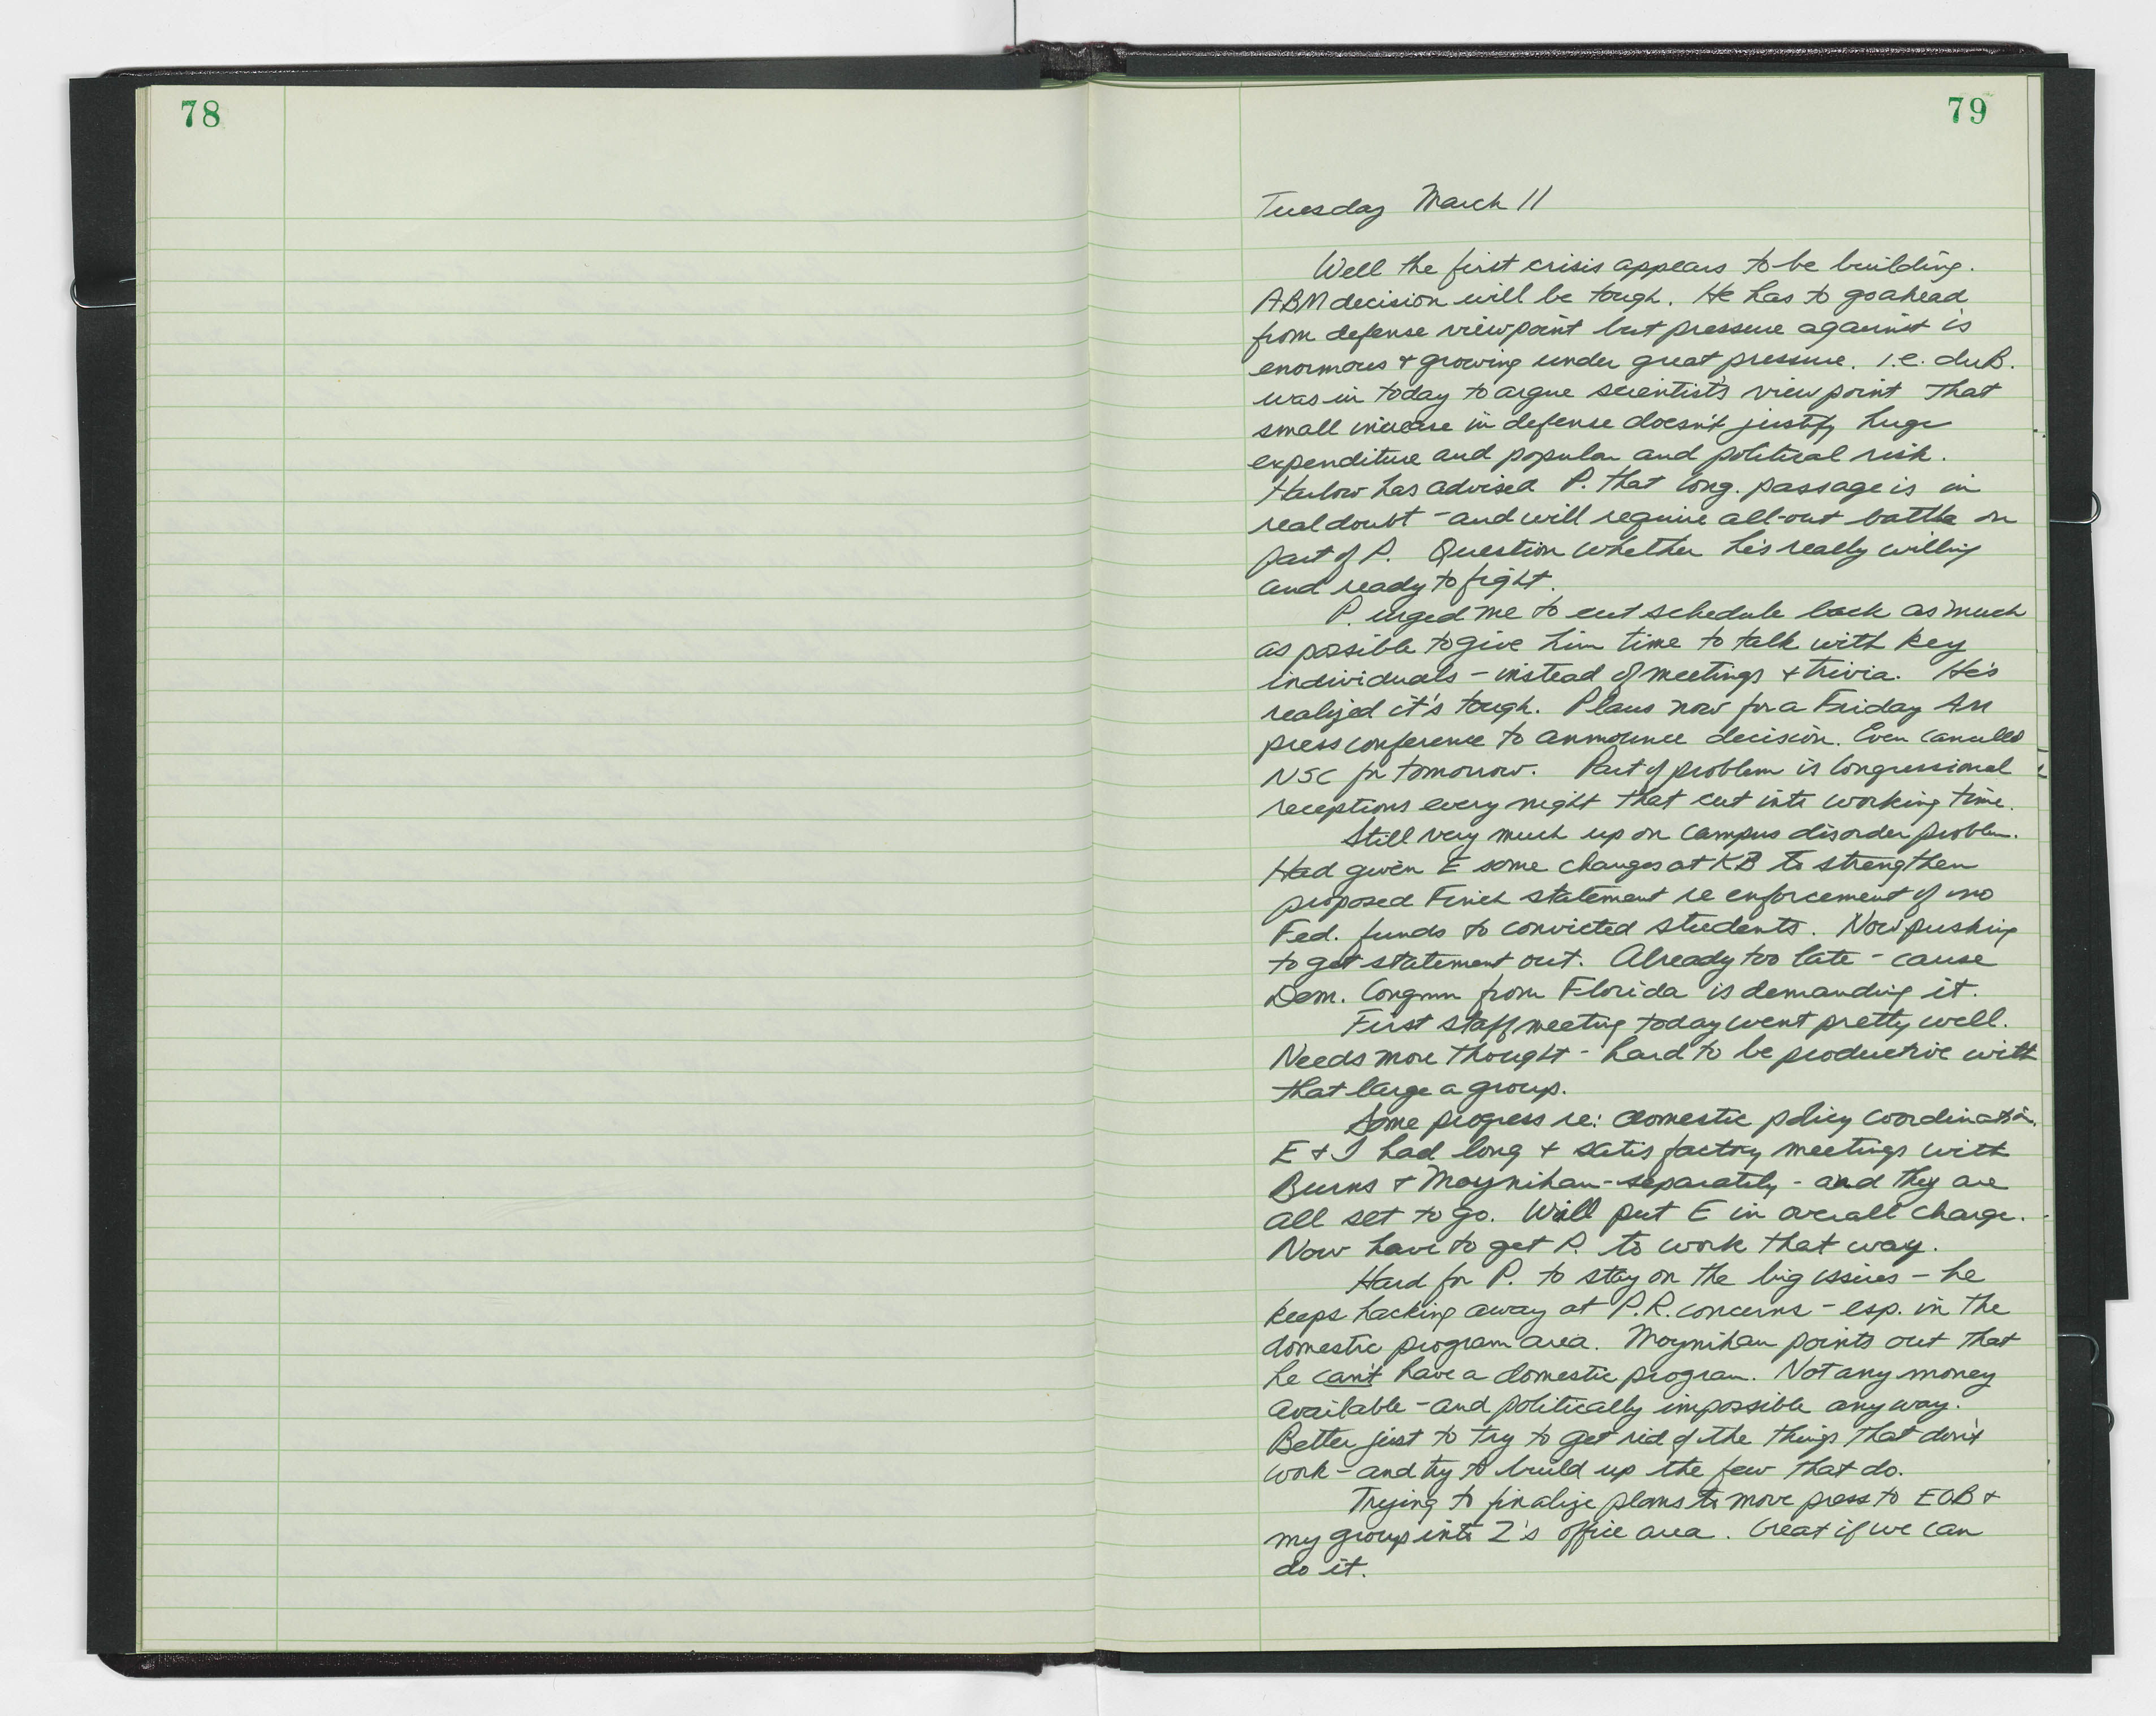 78
79
Tuesday March 11
Well the first crisis appears to be building.
ABM decision will be tough. He has to go ahead
from defense viewpoint but pressure against is
enormous & growing under great pressure. i.e. duB.
was in today to argue scientist's viewpoint that
small increase in defense doesn't justify huge
expenditure and popular and political risk.
Harlow has advised P. that Cong. passage is in
real doubt - and will require all-out battle on
part of P. Question whether he's really willing
and ready to fight.
P. urged me to cut schedule back as much
as possible to give him time to talk with key
individuals - instead of meetings & trivia. He's
realized it's tough. Plans now for a Friday AM
press conference to announce decision. Even cancelled
NSC for tomorrow. Part of problem is Congressional
receptions every night that cut into working time.
Still very much up on campus disorder problem.
Had given E some changes at KB to strengthen
proposed Finch statement re enforcement of no
Fed. funds to convicted students. Now pushing
to get statement out. Already too late - cause
Dem. Congmn from Florida is demanding it.
First staff meeting today went pretty well.
Needs more thought - hard to be productive with
that large a group.
Some progress re: domestic policy coordination.
E & I had long & satisfactory meetings with
Burns & Moynihan - separately - and they are
all set to go. Will put E in overall charge.
Now have to get P. to work that way.
Hard for P. to stay on the big issues - he
keeps hacking away at P.R. concerns - esp. in the
domestic program area. Moynihan points out that
he can't have a domestic program. Not any money
available - and politically impossible anyway.
Better just to try to get rid of the things that don't
work - and try to build up the few that do.
Trying to finalize plans to move press to EOB &
my group into Z's office area. Great if we can
do it.